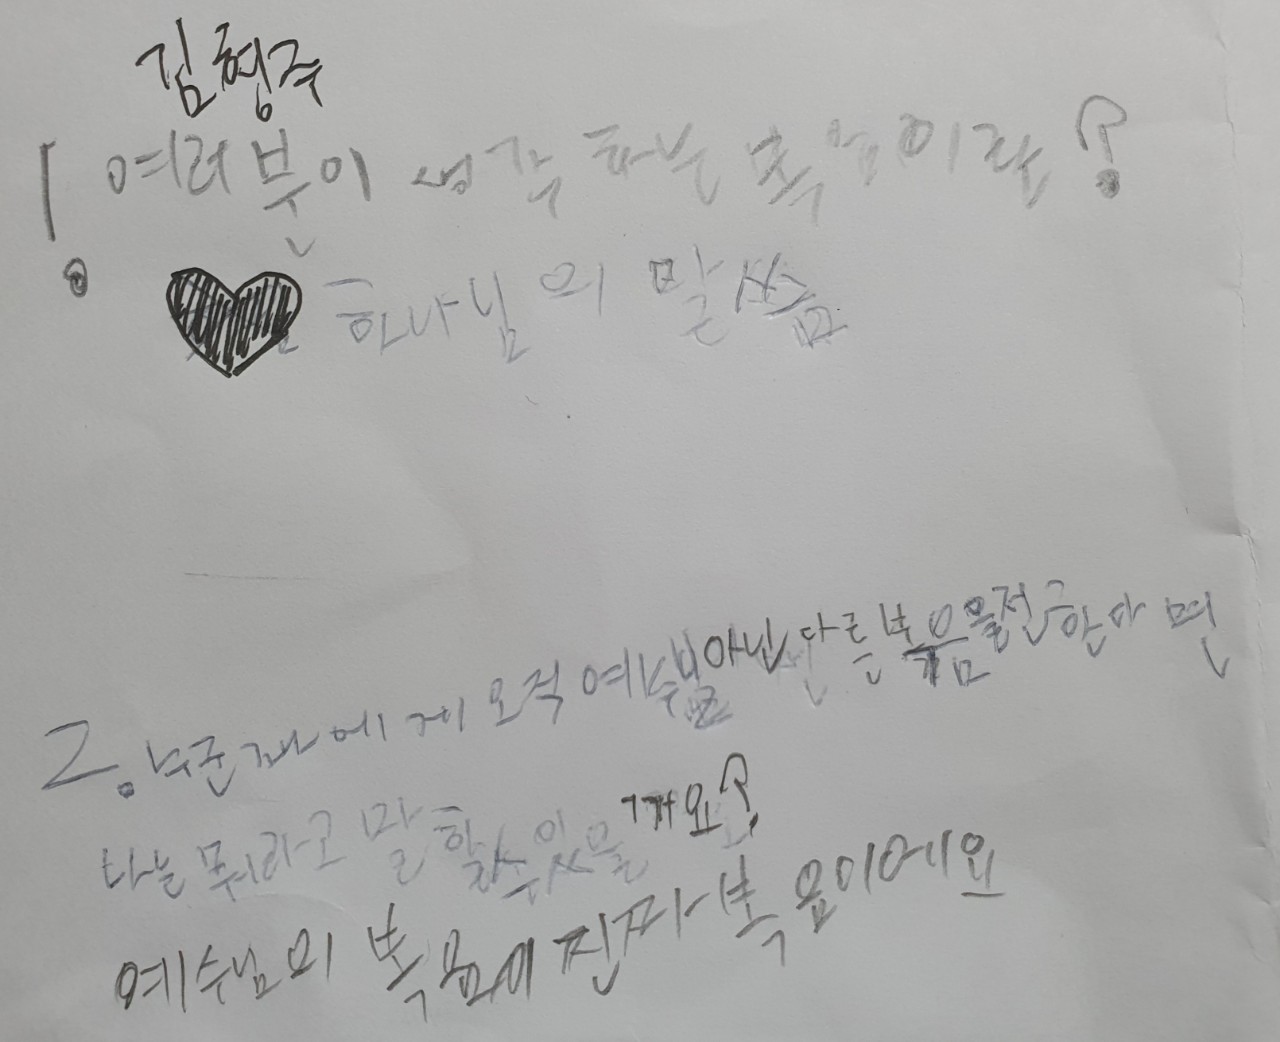 김형주
1. 여러분이 생각하는 복음이란?
하나님의 말씀
2. 누군가에게 오직 예수님 아닌 다른 복음을 전한다면
나는 뭐라고 말할 수 있을까요?
예수님의 복음이 진짜 복음이에요